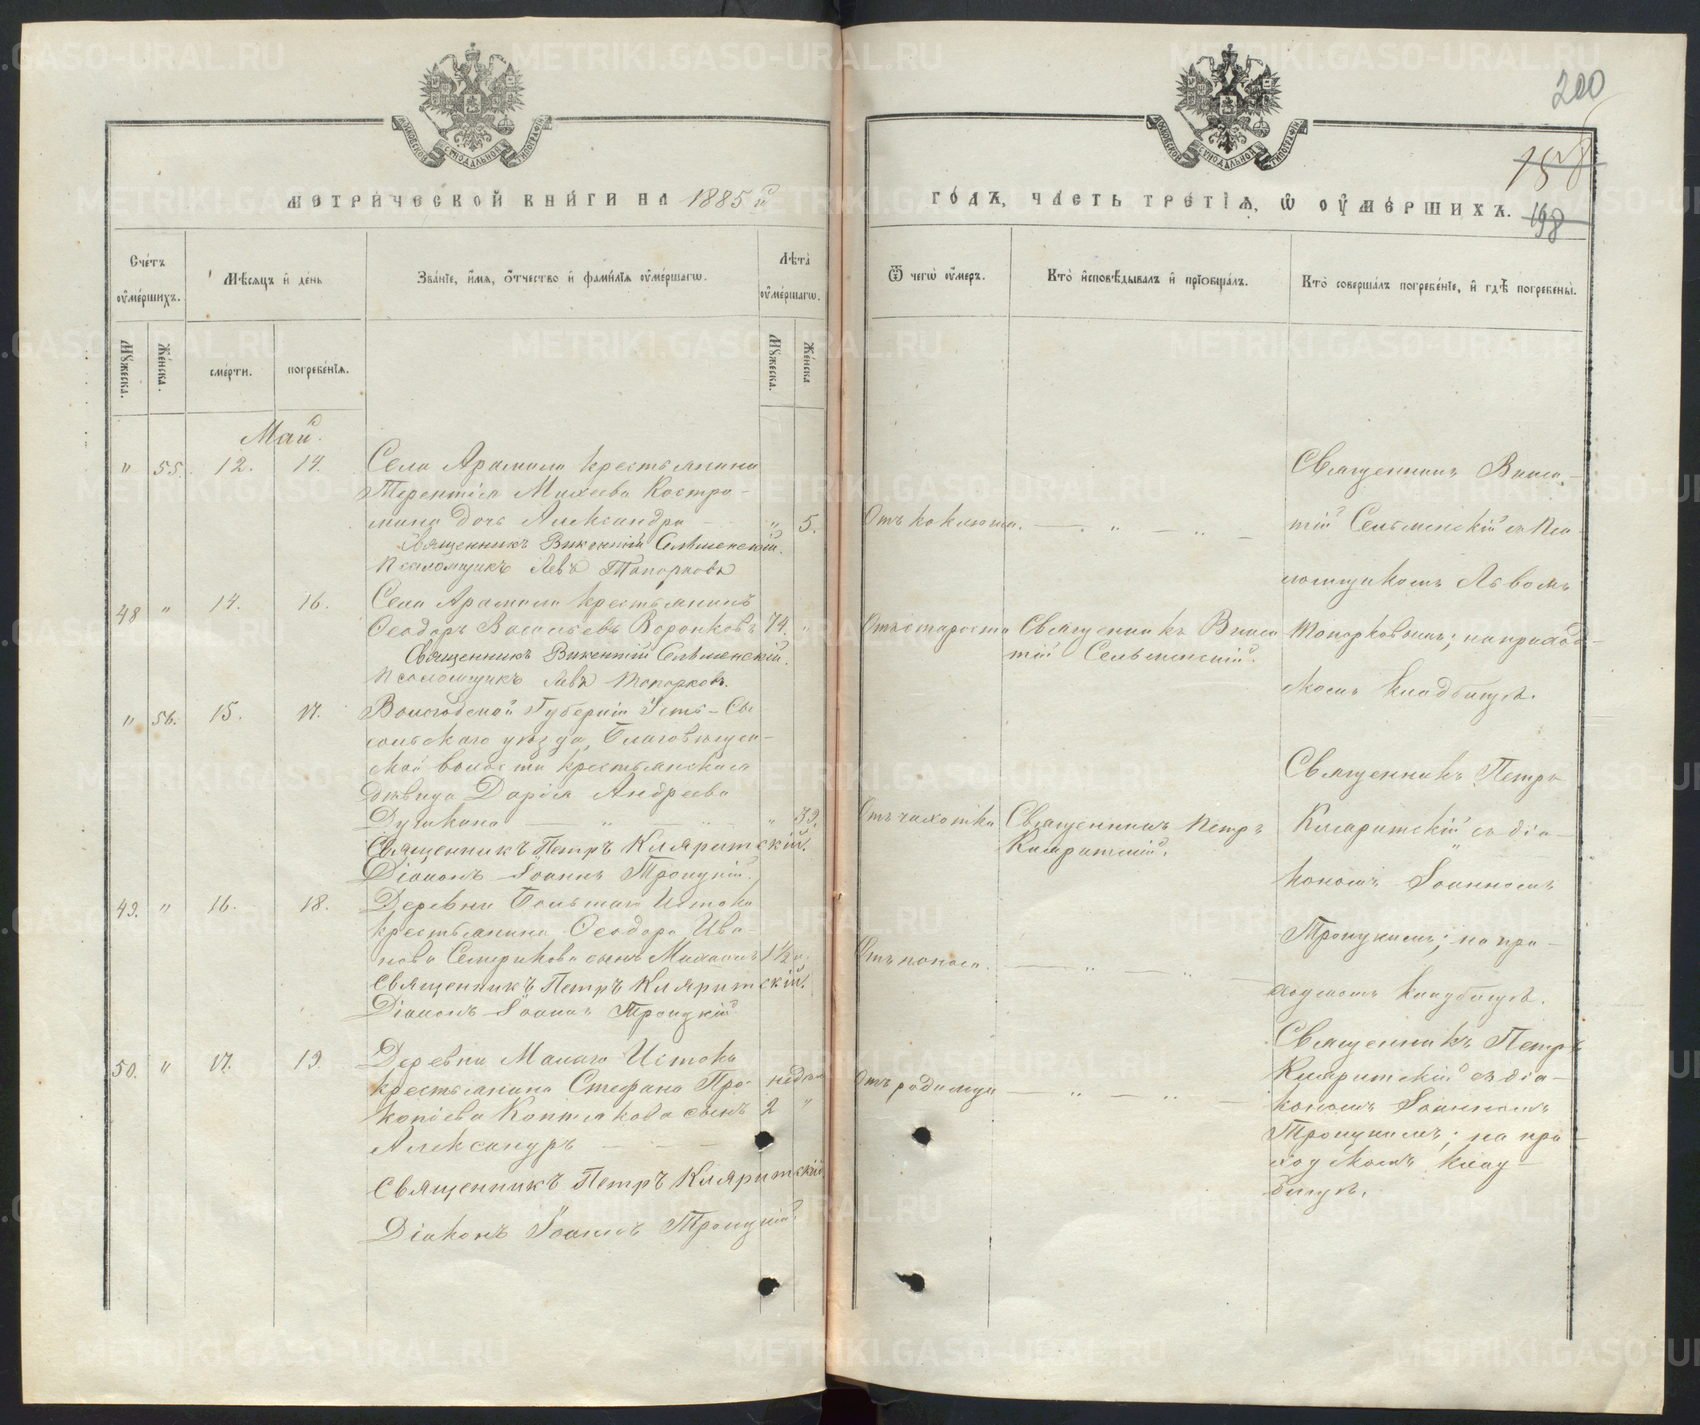 200
158
198
МОСКОВСКОЙ СѴНОДАЛЬНОЙ ТИПОГРАФІИ
МОСКОВСКОЙ СѴНОДАЛЬНОЙ ТИПОГРАФІИ
МЕТРИ́ЧЕСКОЙ КНИ́ГИ НА 1885 й
ГО́ДЪ, ЧА́СТЬ ТРЕ́ТІѦ, Ѡ ОУМЕ́РШИХЪ.
Сче́тъ оумершихъ.
Мѣсяцъ и день
Званіе, имя, отчество и фамилія оумершагѡ.
Лѣта оумершагѡ.
Мужеска.
Женска.
смерти.
погребенія.
Мужеска.
Женска
Ѿ чегѡ оумеръ.
Кто исповѣдывалъ и пріобщалъ.
Кто совершалъ погребеніе, и гдѣ погребены.
Май.
" 55. 12. 14. Села Арамили крестьянина
Терентія Михеева Костро-
мина дочь Александра " 5.
Священникъ Викентій Сельменскій.
Псаломщикъ Левъ Топорковъ
Отъ коклюша. — " — " —
Священникъ Викен-
тій Сельменскій съ пса
ломщикомъ Львомъ
Топорковымъ; на приход-
скомъ кладбищѣ.
48 " 14. 16. Села Арамили крестьянинъ
Ѳеодоръ Васильевъ Воронковъ 74. "
Священникъ Викентій Сельменскій.
Псаломщикъ Левъ Топорковъ.
Отъ старости
Священникъ Викен
тій Сельменскій.
" 56. 15. 17. Вологодской Губерніи Усть-Сы
сольскаго уѣзда, Благовѣщен-
ской волости крестьянская
дѣвица Дарія Андреева
" 39.
Священникъ Петръ Кляритскій.
Діаконъ Іоаннъ Троицкій.
Отъ чахотки
Священникъ Петръ
Кляритскій.
Священникъ Петръ
Кляритскій съ діа-
кономъ Іоанномъ
Троицкимъ; на при-
ходскомъ кладбищѣ.
49. " 16. 18. Деревни Большаго Истока
крестьянина Ѳеодора Ива-
нова Семерикова сынъ Михаилъ 1½ "
Священникъ Петръ Кляритскій.
Діаконъ Іоаннъ Троицкій
Отъ поноса. — " — " —
50. " 17. 19. Деревни Малаго Истока
крестьянина Стефана Про- недѣли
копіева Коптякова сынъ 2 "
Александръ — — —
Священникъ Петръ Кляритскій
Діаконъ Іоаннъ Троицкій.
Отъ родимца — " — " —
Священникъ Петръ
Кляритскій съ діа-
кономъ Іоанномъ
Троицкимъ; на при-
ходскомъ клад-
бищѣ.
METRIKI.GASO-URAL.RU